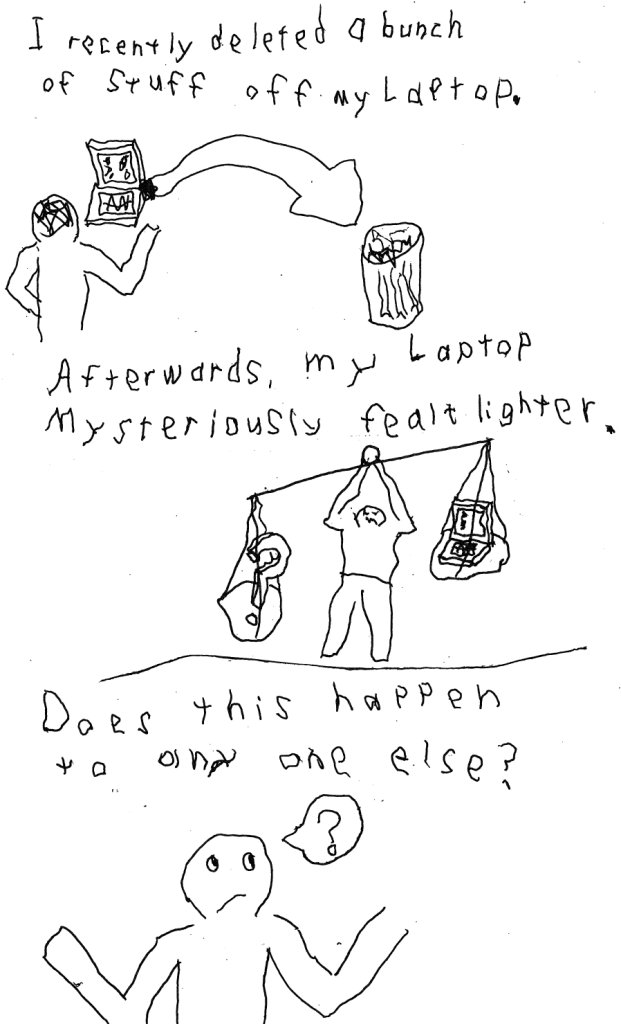 I recently deleted a bunch
of stuff off my Laptop.
Afterwards, my Laptop
Mysteriously fealt lighter.
Does this happen
to any one else?
?